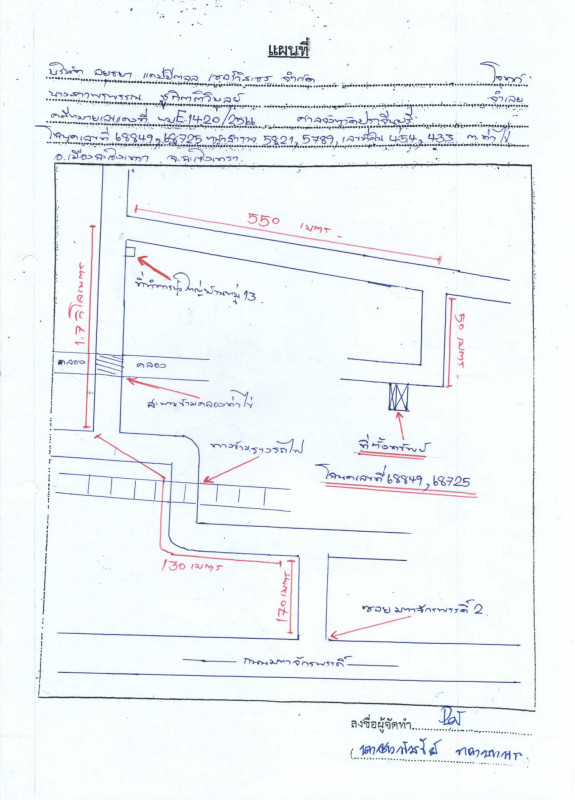 แผนที่
บริษัท อยุธยา แคปปิตอล เซอร์วิสเซส จำกัด โจทก์
จำเลย
คดีหมายเลขแดงที่ ผบE.1420/25 ศาลจังหวัดปราจีนบุรี
โฉนดเลขที่ 68849, 68725 หน้าสำรวจ 5821, 5789, เลขที่ดิน 454, 433 ต.ท่าไข่
อ.เมืองฉะเชิงเทรา จ.ฉะเชิงเทรา
550 เมตร
ที่ทำการผู้ใหญ่บ้านหมู่ 13
1.7 กิโลเมตร
50 เมตร
คลอง
คลอง
สะพานข้ามคลองท่าไข่
ทางข้ามรางรถไฟ
ที่ตั้งทรัพย์
โฉนดเลขที่ 68849, 68725
130 เมตร
170 เมตร
ซอย มหาจักรพรรดิ์ 2
ถนนมหาจักรพรรดิ์
ลงชื่อผู้จัดทำ